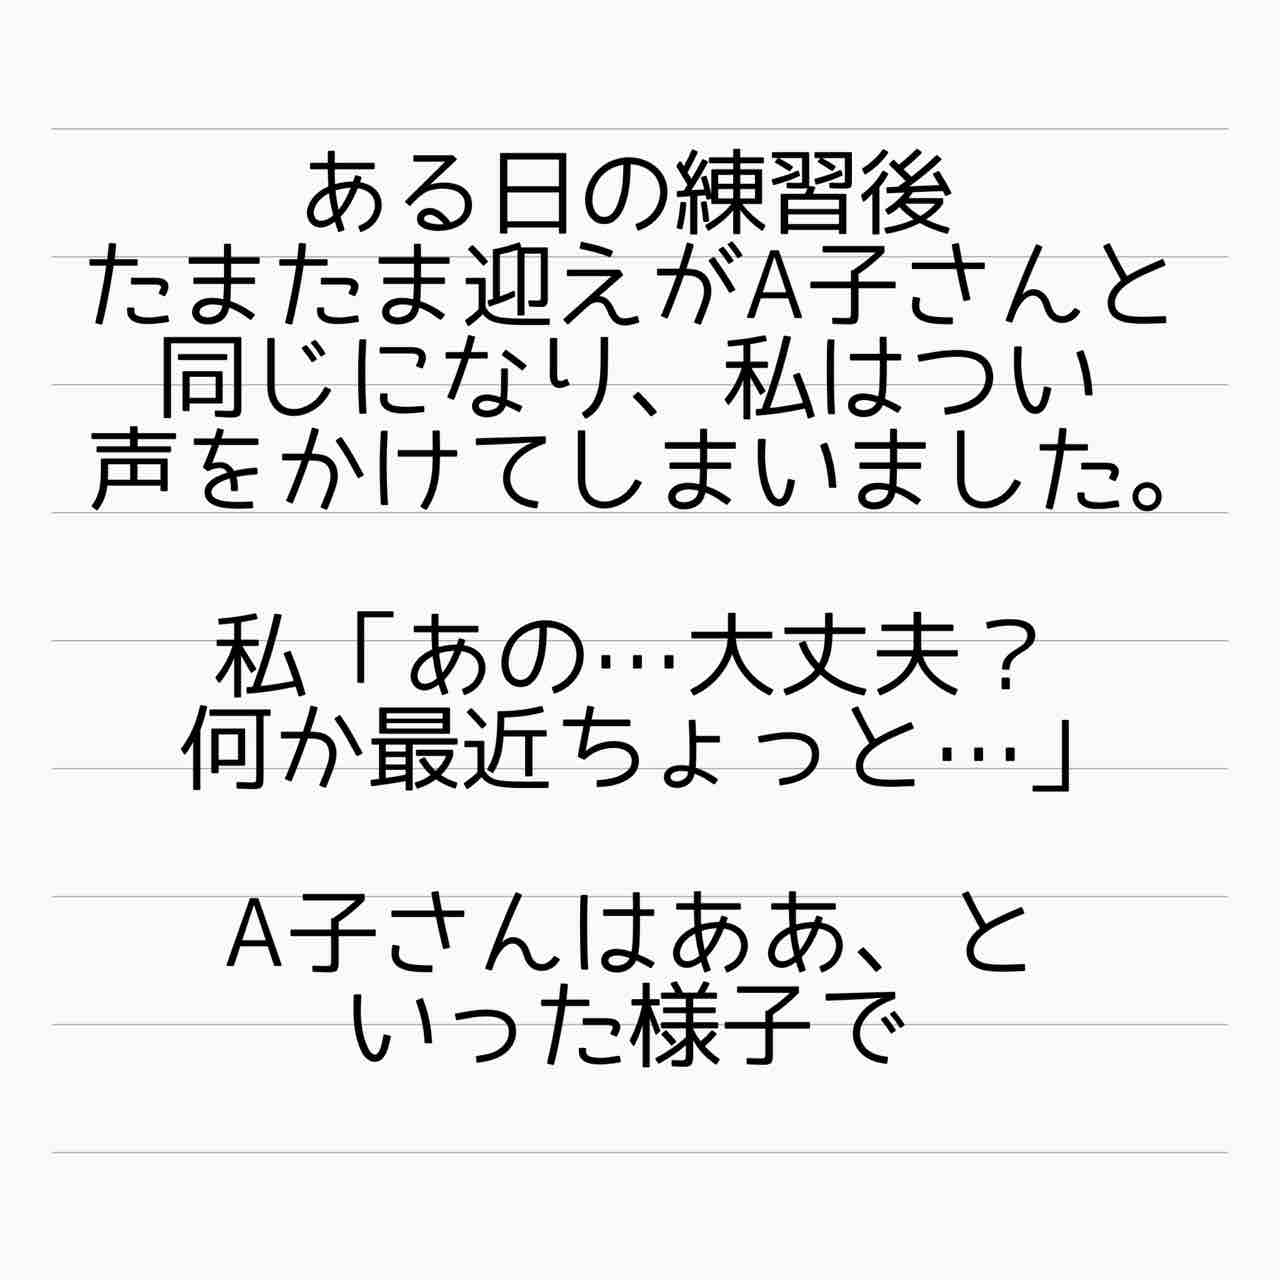 ある日の練習後
たまたま迎えがA子さんと
同じになり、私はつい
声をかけてしまいました。
私「あの…大丈夫？
何か最近ちょっと…」
A子さんはああ、と
いった様子で